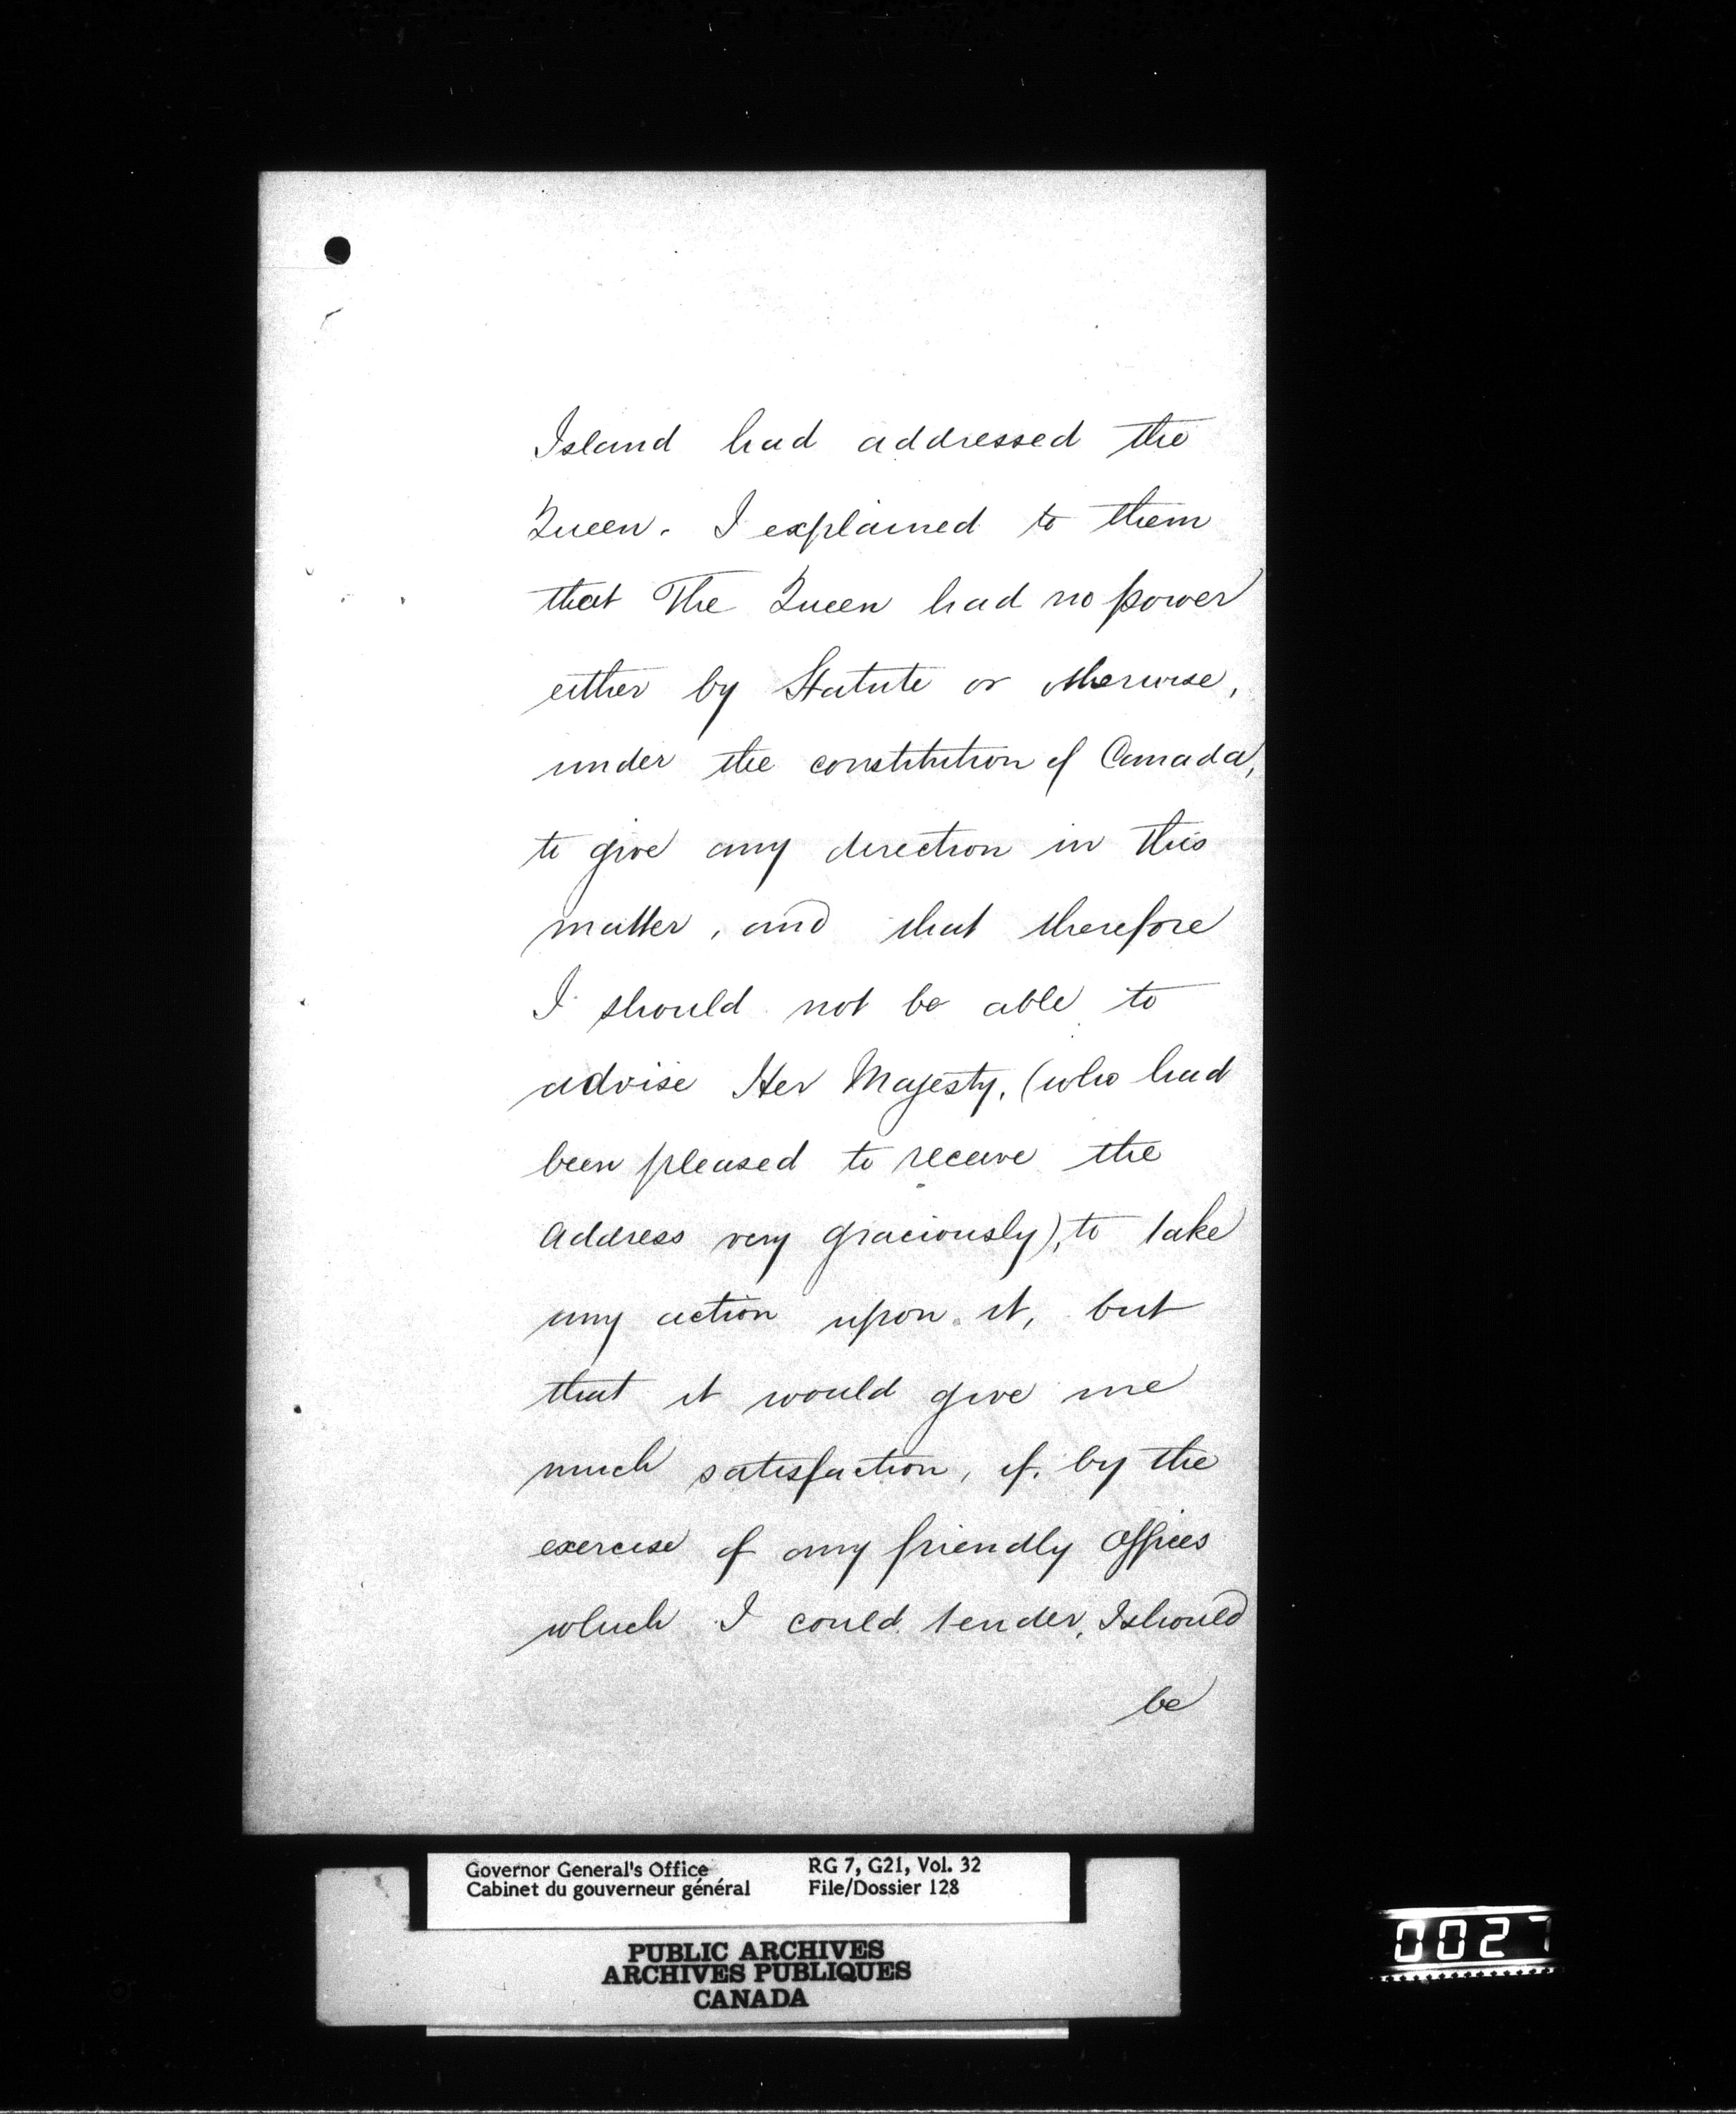 Island had addressed the
Queen. I explained to them
that The Queen had no power
either by Statute or otherwise,
under the constitution of Canada,
to give any direction in this
matter, and that therefore
I should not be able to
advise Her Majesty, (who had
been pleased to receive the
Address very graciously), to take
any action upon it, but
that it would give me
much satisfaction, if, by the
exercise of any friendly offices
which I could tender, I should
be
Governor General's Office
Cabinet du gouverneur général
RG 7, G21, Vol. 32
File/Dossier 128
PUBLIC ARCHIVES
ARCHIVES PUBLIQUES
CANADA
0027